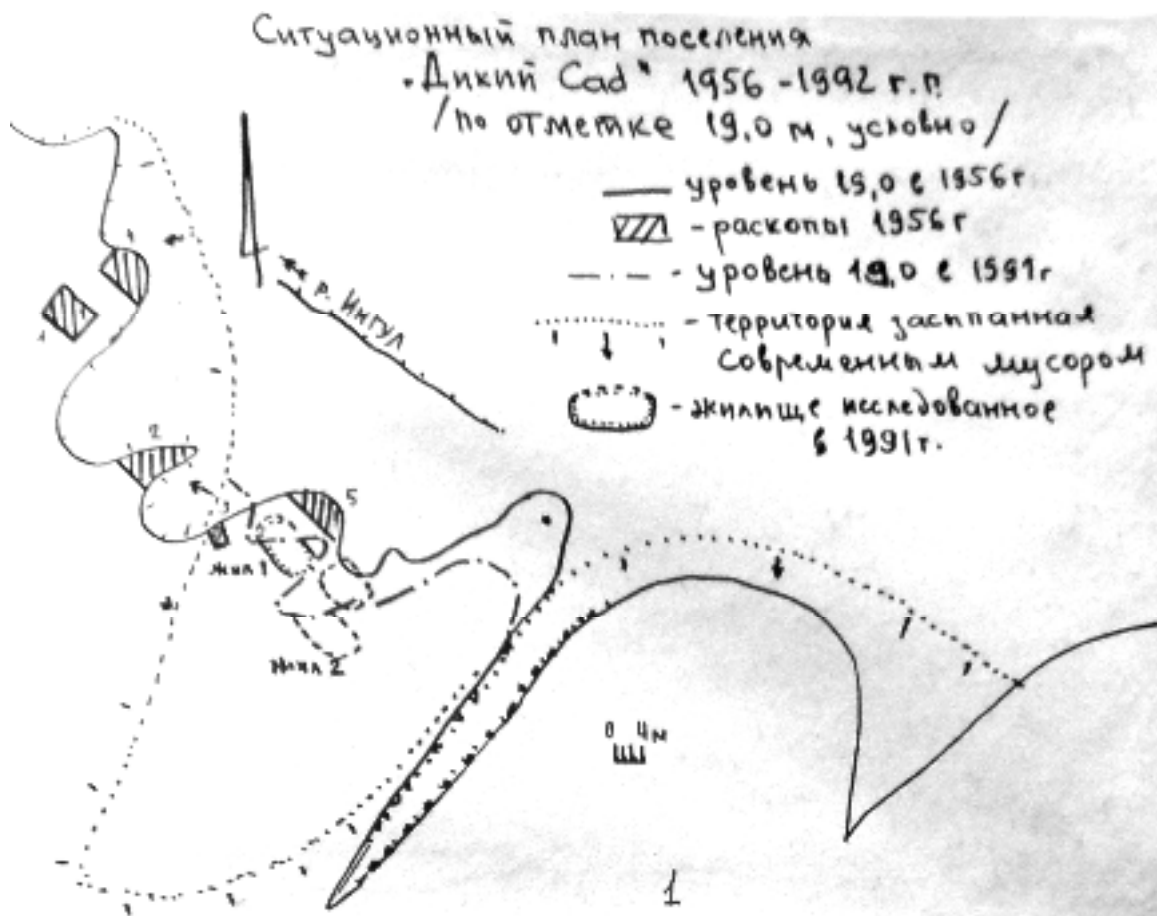 Ситуационный план поселения
„Дикий Сад" 1956 - 1992 г.г.
/по отметке 19,0 м, условно/
уровень 19,0 в 1956 г
- раскопы 1956 г
- уровень 19,0 в 1991 г
- территория засыпанная
современным мусором
- жилище исследованное
в 1991 г.
р. Ингул
1
2
5
жил 1
жил 2
0 4 м
1